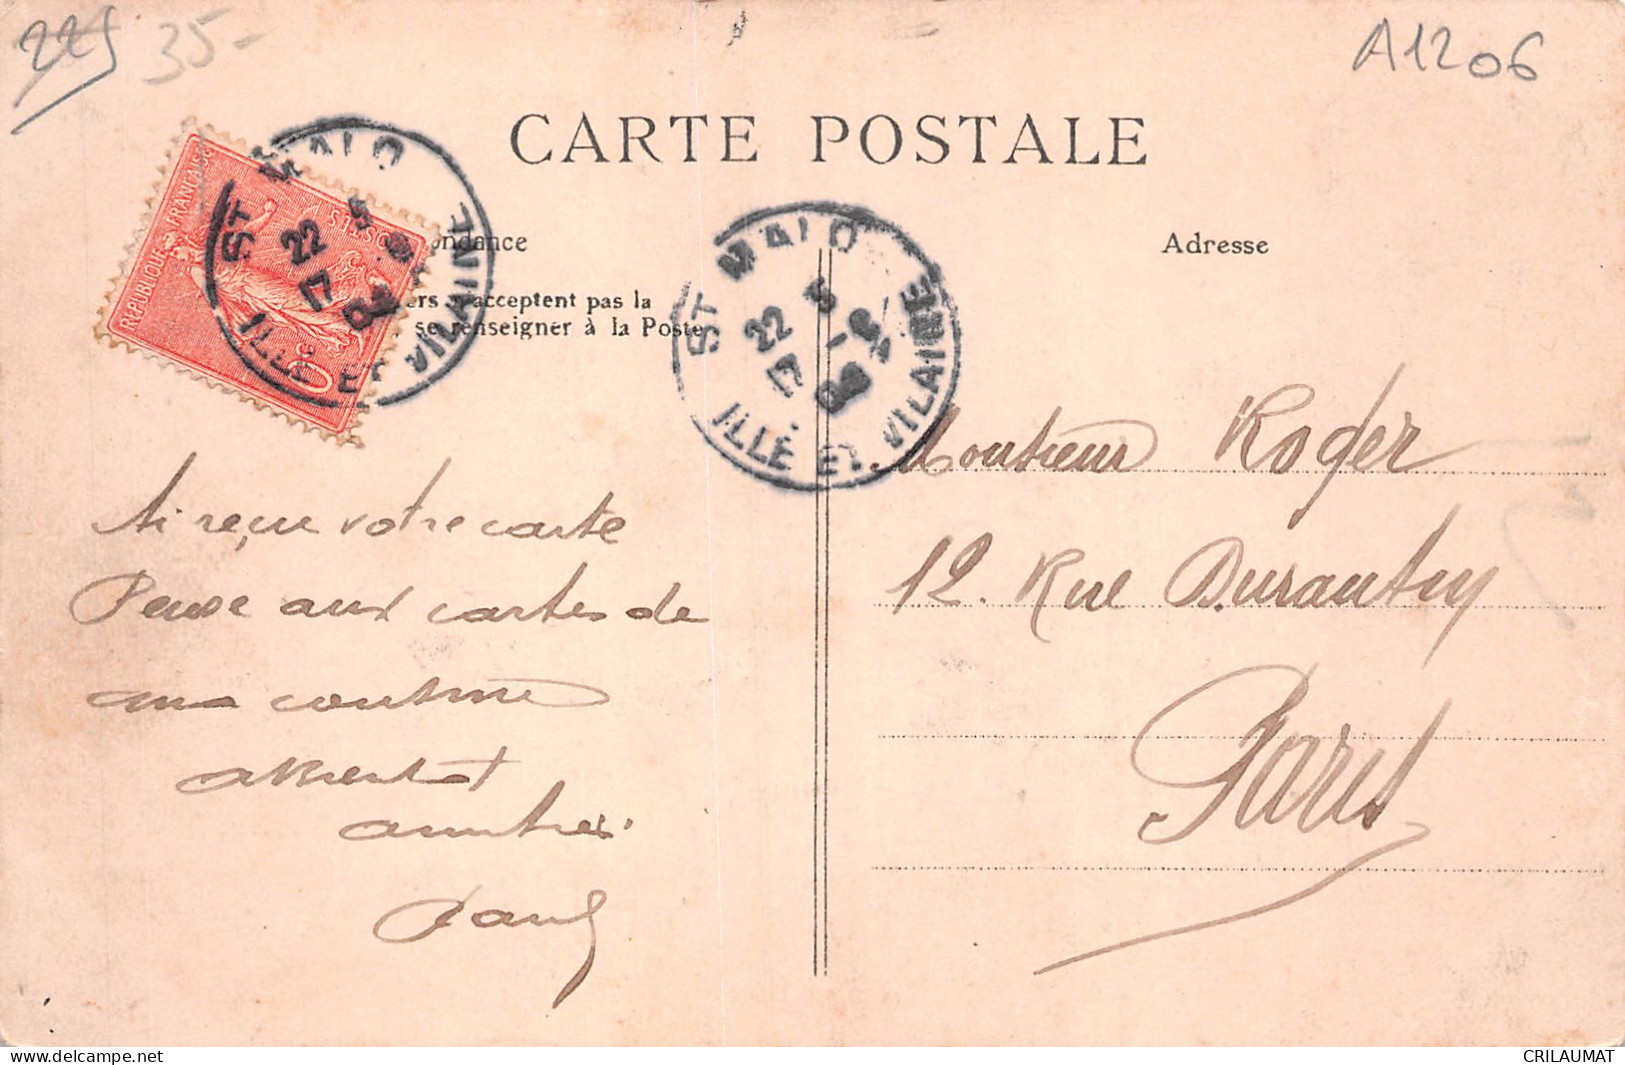 225
35-
A1206
CARTE POSTALE
ndance
Adresse
ers n'acceptent pas la
se renseigner à la Poste
REPUBLIQUE FRANCAISE
POSTES
ST MALO
22 5
17
ILLE ET VILAINE
ST MALO
22 5
17
ILLE ET VILAINE
Monsieur Roger
12. Rue Durantin
Paris
Ai reçu votre carte
Pense aux cartes de
ma cousine
amitiés.
Paul
CRILAUMAT